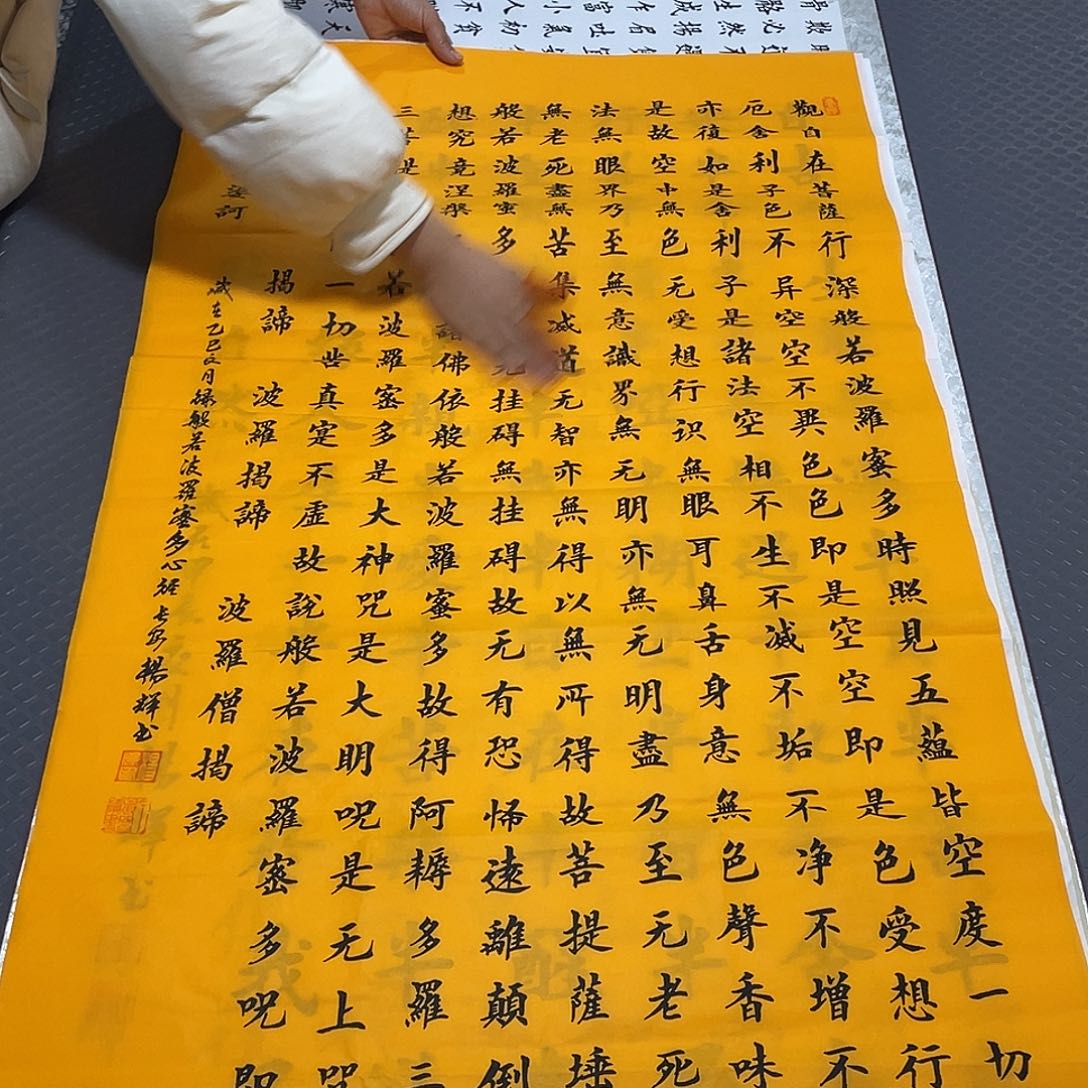 觀自在菩薩行深般若波羅蜜多時照見五蘊皆空度一切
厄舍利子色不异空空不異色色即是空空即是色受想行
亦復如是舍利子是諸法空相不生不滅不垢不净不增不
是故空中無色无受想行识無眼耳鼻舌身意無色聲香味
法無眼界乃至無意識界無无明亦無无明盡乃至无老死
無老死盡無苦集滅道无智亦無得以無所得故菩提薩埵
般若波羅蜜多无挂碍無挂碍故无有恐怖遠離顛倒
想究竟涅槃諸佛依般若波羅蜜多故得阿耨多羅三
三菩提若波羅密多是大神咒是大明呪是无上咒
一切世真寔不虛故說般若波羅密多呪即
揭諦波羅揭諦波羅僧揭諦
婆訶
歲在乙巳月録般若波羅蜜多心経楊輝書